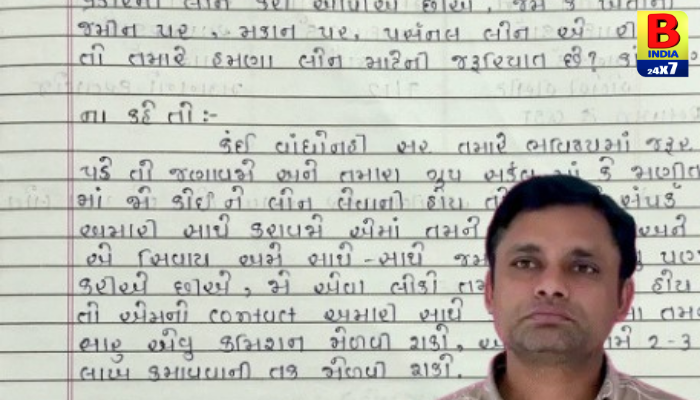 B
INDIA
24x7
જમીન પર, મકાન પર, પર્સનલ લોન એ
તો તમારે હમણા લોન માટેની જરૂરિયાત છે?
ના કહે તો :-
કંઈ વાંધોનહી સર તમારે ભવિષ્યમાં જરૂર
પડે તો જણાવજો અને તમારા ગ્રુપ સર્કલ માં કે
માં જો કોઈ ને લોન લેવાની હોય તો સંપર્ક
અમારી સાથે કરાવજો એમાં તમને અને
એ સિવાય અમે સાથે-સાથે જમ પણ
કરીએ છીએ, જો એવા લોકો હોય
તો એમનો contact અમારી સાથે
સારુ એવુ કમિશન મેળવી શકો, 2-3
લાખ કમાવવાની તક મેળવી શકો.